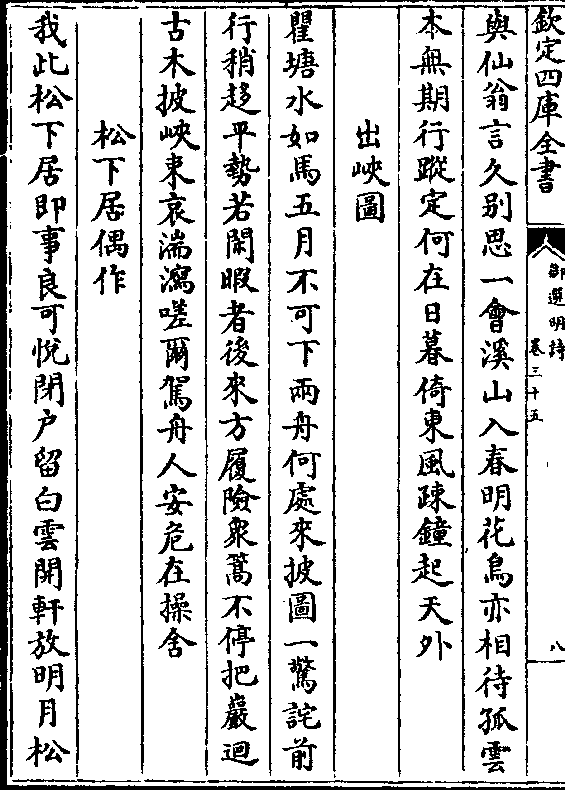 欽定四庫全書
御選明詩
卷三十五
八
與仙翁言久别思一會溪山入春明花鳥亦相待孤雲
本無期行蹤定何在日暮倚東風疎鐘起天外
出峽圖
瞿塘水如馬五月不可下兩舟何處來披圖一驚詫前
行稍趍平勢若閒暇者後來方履險衆篙不停把巖迴
古木披峽束哀湍瀉嗟爾駕舟人安危在操舍
松下居偶作
我此松下居即事良可悅閉户留白雲開軒放明月松